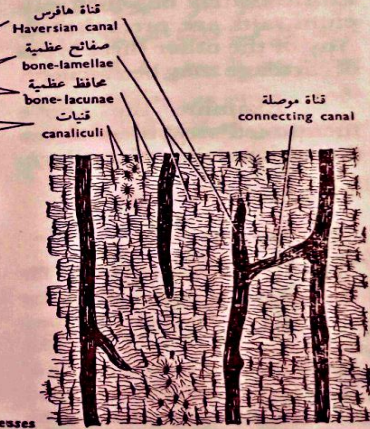 قناة هافرس
Haversian canal
صفائح عظمية
bone-lamellae
محافظ عظمية
bone-lacunae
قنيات
canaliculi
قناة موصلة
connecting canal
esses